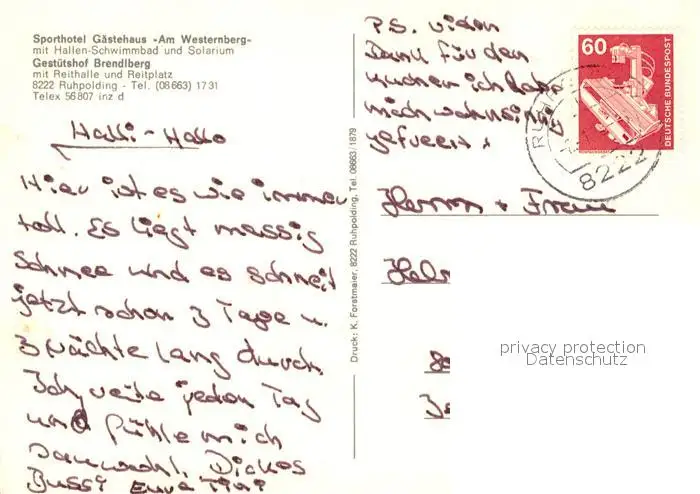 Sporthotel Gästehaus »Am Westernberg«
mit Hallen-Schwimmbad und Solarium
Gestütshof Brendlberg
mit Reithalle und Reitplatz
8222 Ruhpolding - Tel. (08663) 1731
Telex 56807 inz d
Halli-Hallo
Hier ist es wie immer
toll. Es liegt massig
Schnee und es schneit
jetzt schon 3 Tage u.
3 Nächte lang durch
Ich reite jeden Tag
und fühle mich
sauwohl. Dickes
Bussi Eure
Druck: K. Forstmaier, 8222 Ruhpolding, Tel. 08663/1879
P.S. vielen
Dank für den
Kuchen ich habe
mich wahnsinnig
gefreut
60
DEUTSCHE BUNDESPOST
8222
Herrn + Frau
privacy protection
Datenschutz